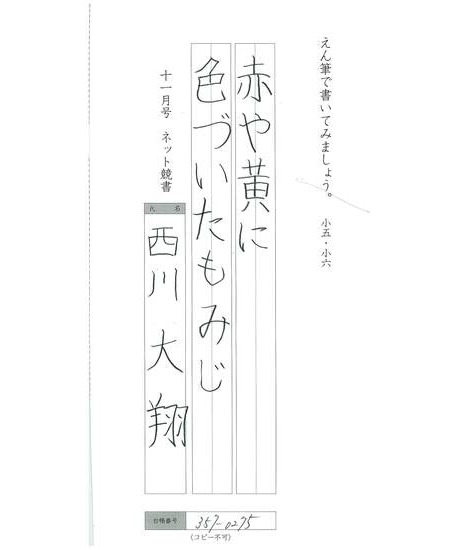 えん筆で書いてみましょう。 小五・小六
赤や黄に
色づいたもみじ
十一月号 ネット競書
氏 名
西川 大翔
台帳番号 357-0275
(コピー不可)